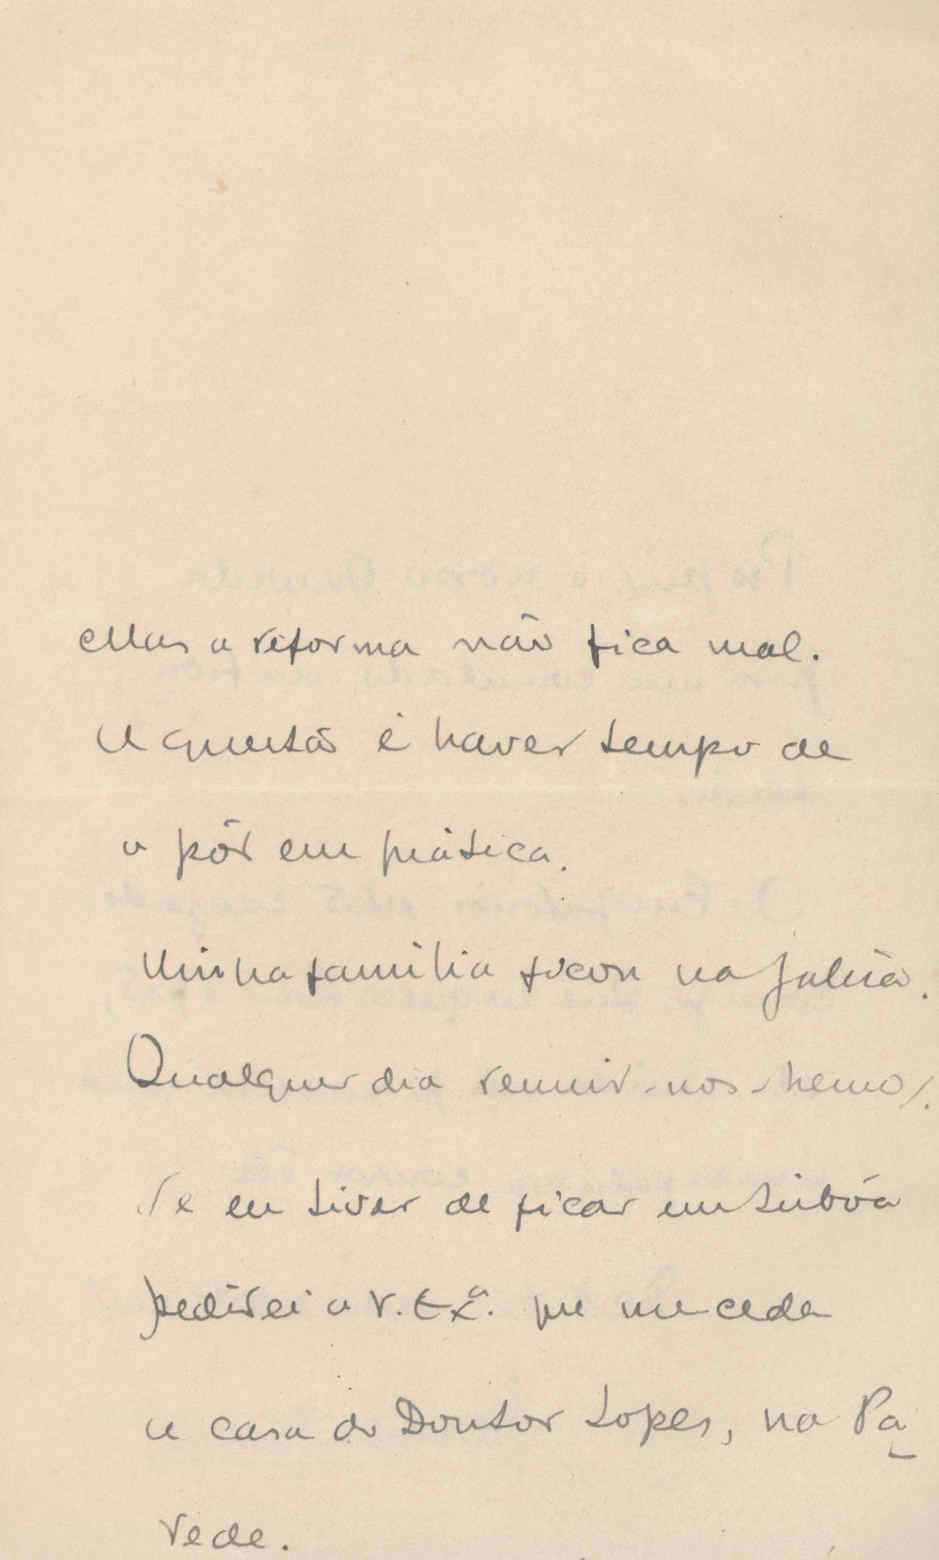 Mas a reforma não fica mal.
A questão é haver tempo de
a pôr em prática.
Minha familia ficou na Galiza.
Qualquer dia reunir-nos-hemos.
Se eu tiver de ficar em Lisbôa
pedirei a V. Exª. que me ceda
a casa do Doutor Lopes, na Pa
rede.